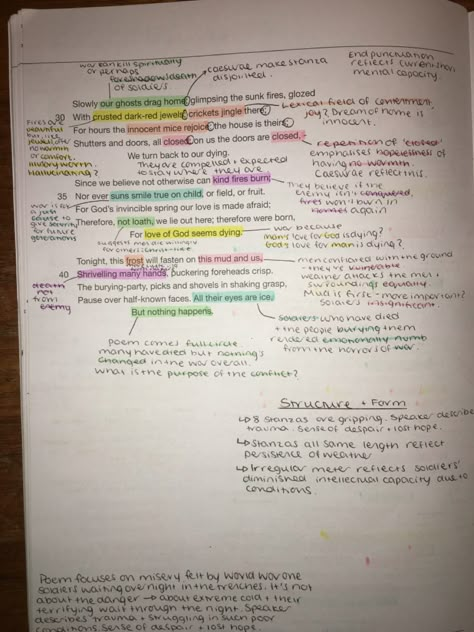 war can kill spirituality
or perhaps
foreshadow death
of soldiers.
caesurae make stanza
disjointed.
End punctuation
reflects current non
mental capacity.
Slowly our ghosts drag home: glimpsing the sunk fires, glozed
30 With crusted dark-red jewels; crickets jingle there;
For hours the innocent mice rejoice: the house is theirs;
Shutters and doors, all closed: on us the doors are closed, -
We turn back to our dying.
Fires are
beautiful
but like
jewels offer
no warmth
or comfort.
Hallucinating?
Lexical field of contentment,
joy? Dream of home is
innocent.
repetition of 'closed'
emphasises hopelessness of
having no warmth.
Caesurae reflect this.
They are compelled + expected
to stay where they are
Since we believe not otherwise can kind fires burn;
35 Nor ever suns smile true on child, or field, or fruit.
For God's invincible spring our love is made afraid;
Therefore, not loath, we lie out here; therefore were born,
For love of God seems dying.
They believe if the
enemy isn't conquered,
fires won't burn in
again
war is
a just
cause to
give security
for future
generations
suggest men die willingly
war because
man's love for God is dying?
God's love for man is dying?
Tonight, this frost will fasten on this mud and us,
40 Shrivelling many hands, puckering foreheads crisp.
The burying-party, picks and shovels in shaking grasp,
Pause over half-known faces. All their eyes are ice,
But nothing happens.
men contrasted with the ground
- they're vulnerable
weather attacks the men +
surroundings equally.
Mud is first - more important?
Soldiers insignificant.
death
not
from
enemy
soldiers who have died
+ the people burying them
rendered emotionally numb
from the horrors of war.
Poem comes full circle.
many have died but nothing's
changed in the war overall.
What is the purpose of the conflict?
Structure + Form
↳ 8 stanzas are gripping. Speaker describes
trauma. Sense of despair + lost hope.
↳ Stanzas all same length reflect
persistence of weather
↳ Irregular meter reflects soldiers'
diminished intellectual capacity due to
conditions.
Poem focuses on misery felt by World War one
soldiers waiting overnight in the trenches. It's not
about the danger → about extreme cold + their
terrifying wait through the night. Speaker
describes trauma + struggling in such poor
conditions. Sense of despair + lost hope.